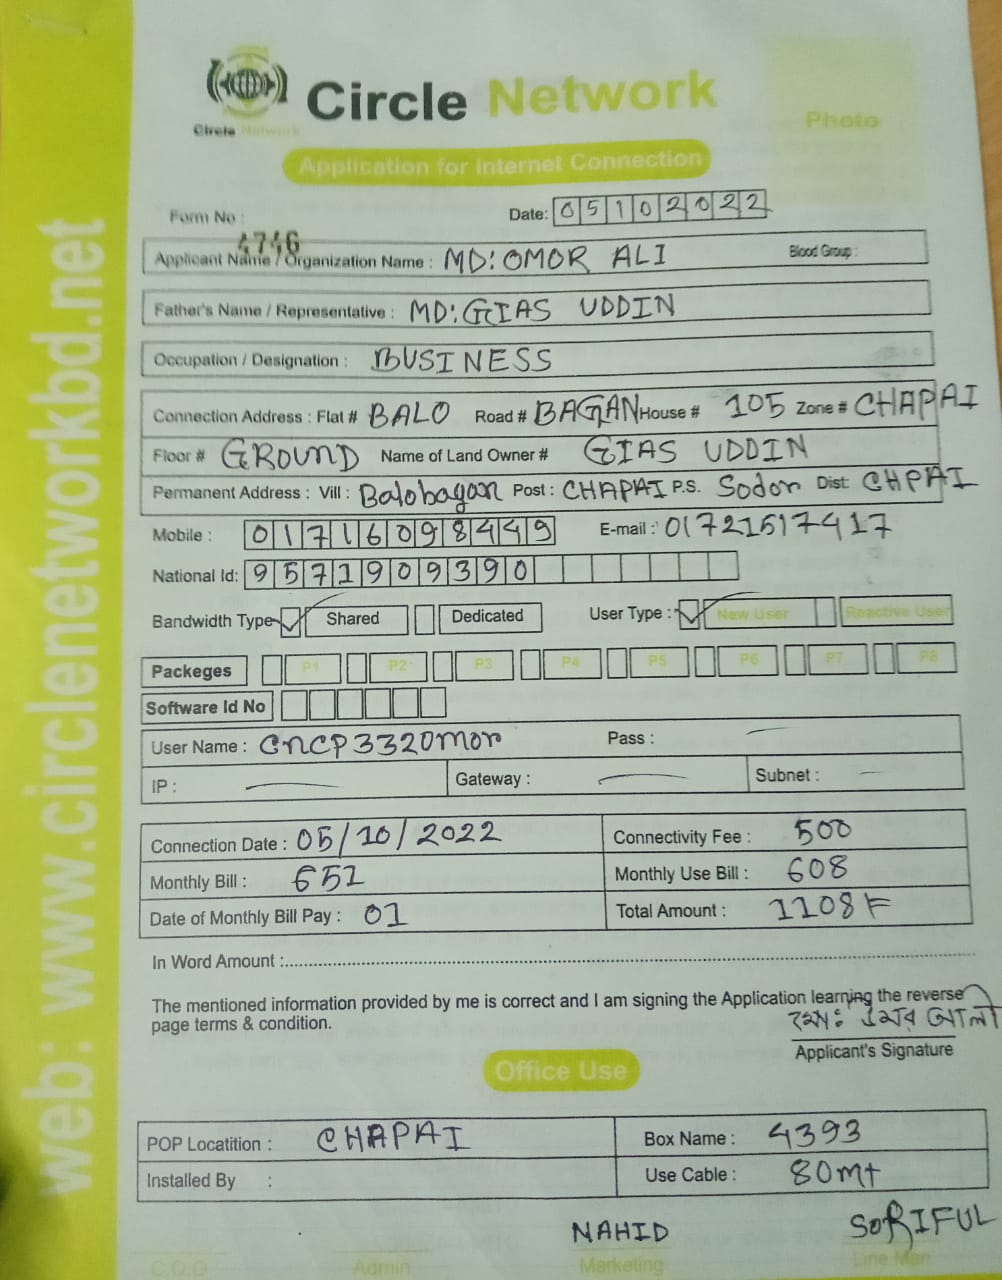 Circle Network
Circle Network
Photo
Application for Internet Connection
Form No :
Date: 05102022
4746
Applicant Name / Organization Name : MD: OMOR ALI Blood Group :
Father's Name / Representative : MD: GIAS UDDIN
Occupation / Designation : BUSINESS
Connection Address : Flat # BALO Road # BAGAN House # 105 Zone # CHAPAI
Floor # GROUND Name of Land Owner # GIAS UDDIN
Permanent Address : Vill : Balobagan Post : CHAPAI P.S. Sodor Dist: CHPAI
Mobile : 01716098449 E-mail : 01721517417
National Id: 9571909390
Bandwidth Type Shared Dedicated User Type : New User Reactive User
Packeges P1 P2 P3 P4 P5 P6 P7 P8
Software Id No
User Name : CnCP3320mor Pass :
IP : Gateway : Subnet :
Connection Date : 05/10/2022 Connectivity Fee : 500
Monthly Bill : 651 Monthly Use Bill : 608
Date of Monthly Bill Pay : 01 Total Amount : 1108
In Word Amount :
The mentioned information provided by me is correct and I am signing the Application learning the reverse
page terms & condition.
মোঃ ওমর আলী
Applicant's Signature
Office Use
POP Locatition : CHAPAI Box Name : 4393
Installed By : Use Cable : 80mt
NAHID SORIFUL
C.O.O Admin Marketing Line Man
web: www.circlenetworkbd.net